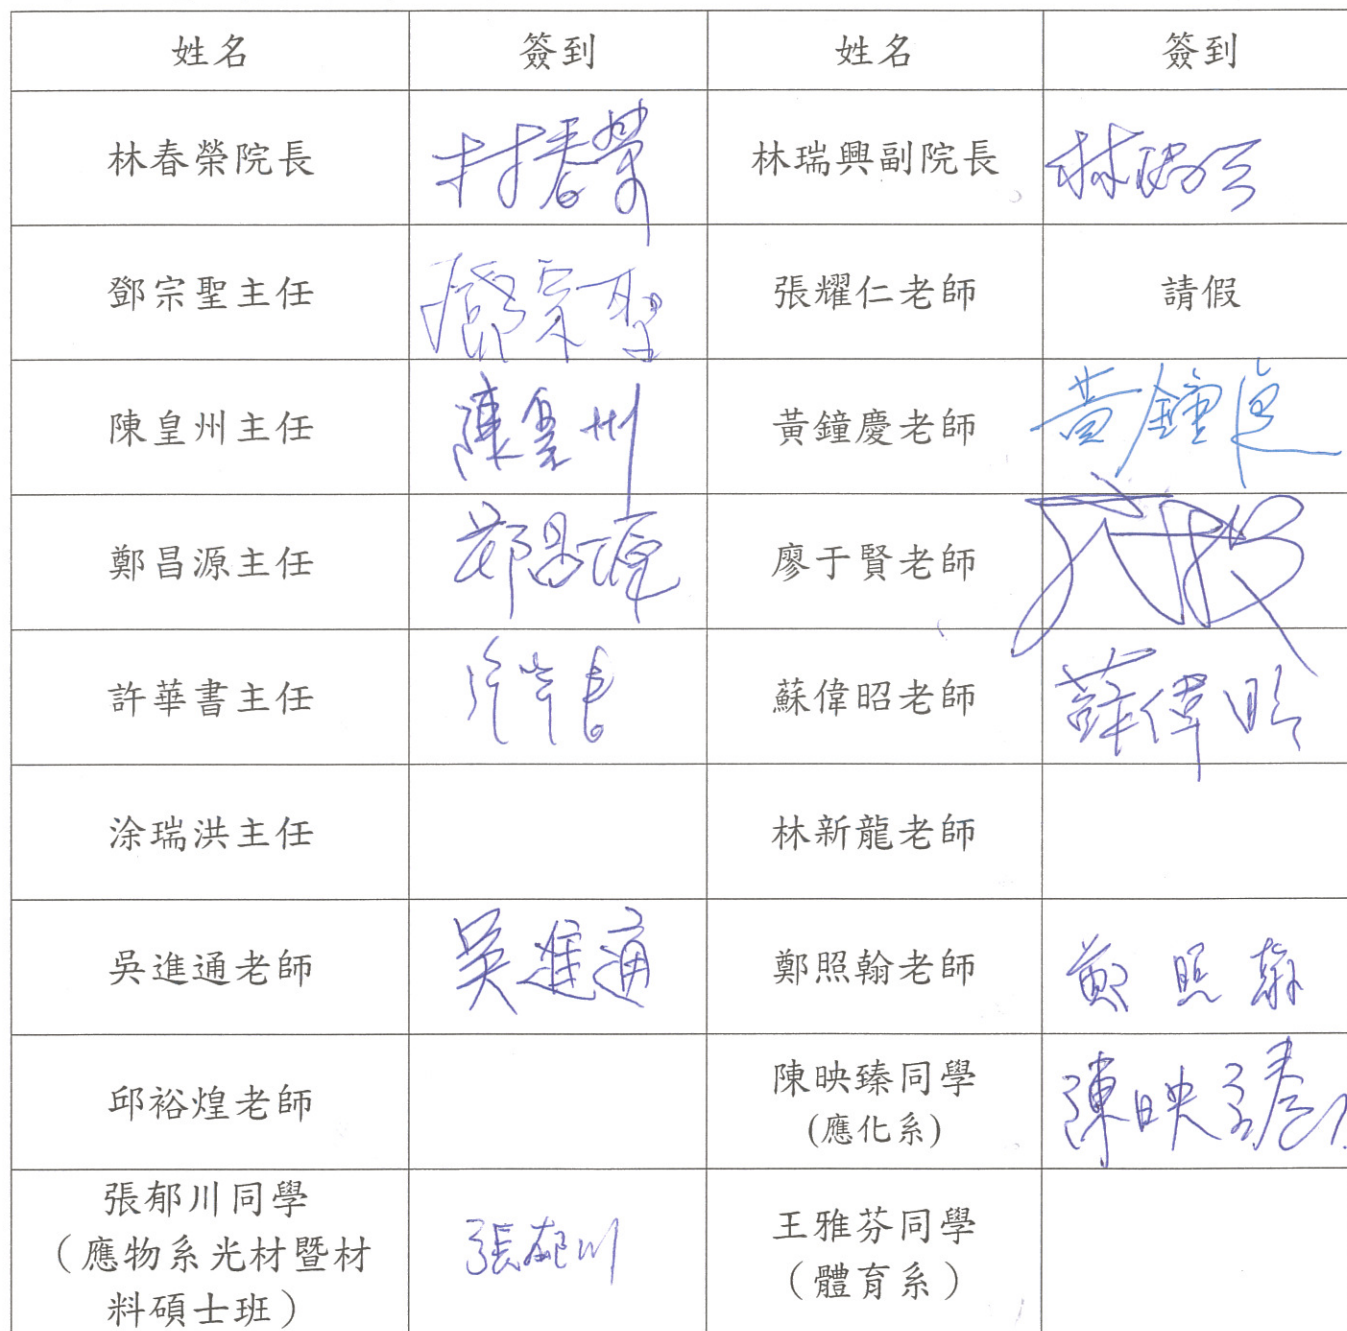 姓名 簽到 姓名 簽到
林春榮院長 林春榮 林瑞興副院長
鄧宗聖主任 鄧宗聖 張耀仁老師 請假
陳皇州主任 陳皇州 黃鐘慶老師 黃鐘慶
鄭昌源主任 鄭昌源 廖于賢老師
許華書主任 許華書 蘇偉昭老師 蘇偉昭
涂瑞洪主任 林新龍老師
吳進通老師 吳進通 鄭照翰老師 鄭照翰
邱裕煌老師 陳映臻同學 陳映臻
(應化系)
張郁川同學 張郁川 王雅芬同學
（應物系光材暨材 （體育系）
料碩士班）